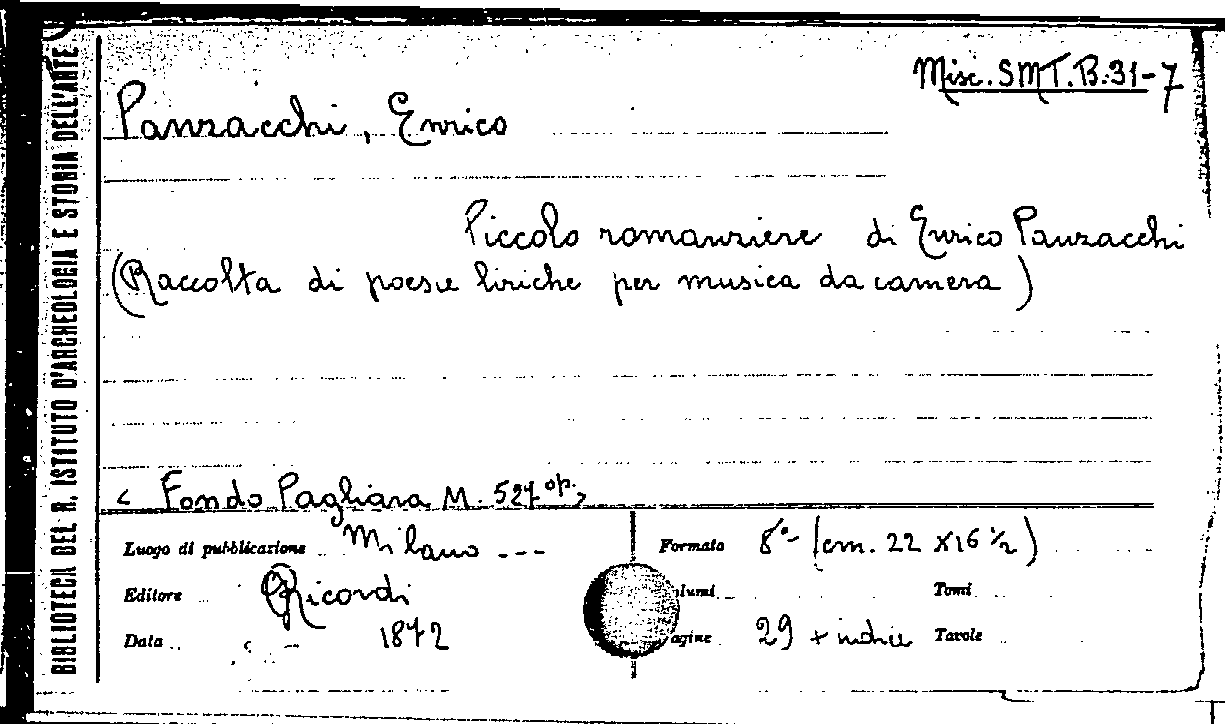 BIBLIOTECA DEL R. ISTITUTO D'ARCHEOLOGIA E STORIA DELL'ARTE
Misc. SMT. B. 31-7
Panzacchi, Enrico
Piccolo romanziere di Enrico Panzacchi
(Raccolta di poesie liriche per musica da camera)
< Fondo Pagliara M. 527 op. >
Luogo di pubblicazione Milano --- Formato 8° (cm. 22 X 16 ½)
Editore Ricordi lumi Tomi
Data 1872 agine 29 + indice Tavole